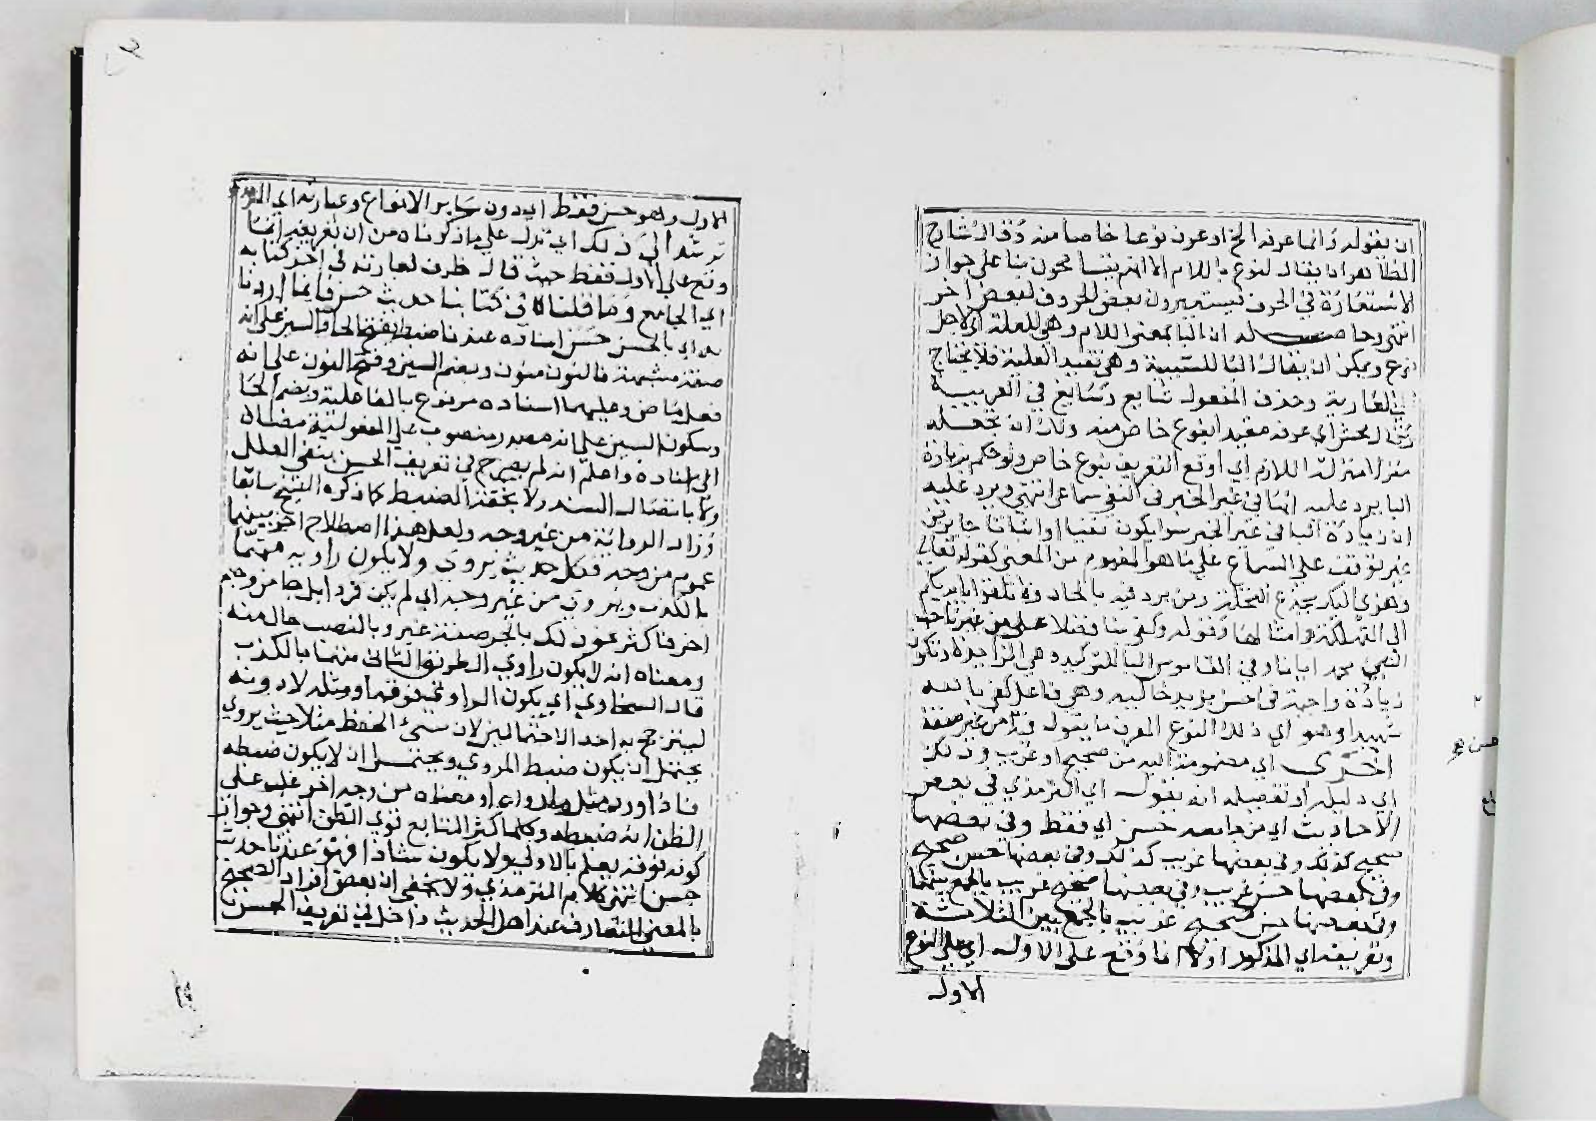 ان يقوله وانما عرف الخ اذ عرف نوعا خاصا منه وقال شارح
الظاهر ان يقال لنوع باللام الا انهم يتسامحون بناء على جواز
الاستعارة في الحرف فيستعيرون بعض الحروف لبعض اخر
انتهى وحاصله ان البا بمعنى اللام وهي للعلة اي لاجل
نوع ويمكن ان يقال البا للسببية وهي تفيد العلية فلا يحتاج
الى العارية وحذف المفعول شايع وسايغ في العربية
وقال المحشي اي عرف مفيد ابنوع خاص منه ولك ان تجعله
منزلا منزلة اللازم اي اوقع التعريف بنوع خاص ولو حكم بزيادة
البا يرد عليه انها في غير الخبر في النفي سماعي انتهى ويرد عليه
ان زيادة البا في غير الخبر سوا يكون نفيا او اثباتا جايز
غير توقف على السماع على ما هو المفهوم من المغني كقوله تعالى
وهزي اليك بجذع النخلة ومن يرد فيه بالحاد ولا تلقوا بايديكم
الى التهلكة وامثالها وقوله وكفى بنا فضلا على من غيرنا حب
النبي محمد ايانا وفي القاموس البا للتوكيد وهي الزايدة وتكون
زيادة واجبة في احسن بزيد غالبة وهي فاعل كفى بالله
شهيدا وهو اي ذلك النوع المعرف ما يقول فيه من غير صفة
اخرى اي مضمومة اليه من صحيح او غريب وذلك
اي دليله او تفصيله انه يقول اي الترمذي في بعض
الاحاديث اي من جامعه حسن اي فقط وفي بعضها
صحيح كذلك وفي بعضها غريب كذلك وفي بعضها حسن صحيح
وفي بعضها حسن غريب وفي بعضها صحيح غريب بالجمع بينهما
وفي بعضها حسن صحيح غريب بالجمع بين الثلاثة
وتعريفه اي المذكور اولا انما وقع على الاول اي على النوع
الاول
الاول وهو حسن فقط اي دون ساير الانواع وعبارته اي
ترشد الى ذلك اي تدل على ما ذكرناه من ان تعريفه انما
وقع على الاول فقط حيث قال ظرف لعبارته في اخر كتابه
اي الجامع وما قلناه في كتابنا حديث حسن فانما اردنا
به اي بالحسن حسن اسناده عندنا ضبط بفتح الحا والسين على انه
صفة مشبهة فالنون منون وبضم السين وفتح النون على انه
فعل ماض وعليهما اسناده مرفوع بالفاعلية وبضم الحا
وسكون السين على انه مصدر منصوب على المفعولية مضاف
الى اسناده واعلم انه لم يصرح في تعريف الحسن بنفي العلل
ولا باتصال السند ولا بخفة الضبط كما ذكره الشيخ سابقا
وزاد الرواية من غير وجه ولعل هذا اصطلاح اخر بينهما
عموم من وجه فكل حديث يروى ولا يكون راويه متهما
بالكذب ويروى من غير وجه اي لم يكن فردا بل جا من وجه
اخر فاكثر نحو ذلك بالجر صفة غير وبالنصب حال منه
ومعناه انه لا يكون راوي الطريق الثاني متهما بالكذب
قال السخاوي اي يكون الراوي نحوه فوقه او مثله لا دونه
ليترجح به احد الاحتمالين لان سيئ الحفظ مثلا حيث يروي
يحتمل ان يكون ضبط المروي ويحتمل ان لا يكون ضبطه
فاذا ورد مثل ما رواه او معناه من وجه اخر غلب على
الظن انه ضبطه وكلما كثر المتابع قوي الظن انتهى وجواز
كونه فوقه يعلم بالاولى ولا يكون شاذا فهو عندنا حديث
حسن انتهى كلام الترمذي ولا يخفى ان بعض افراد الصحيح
بالمعنى المتعارف عند اهل الحديث داخل في تعريف الحسن